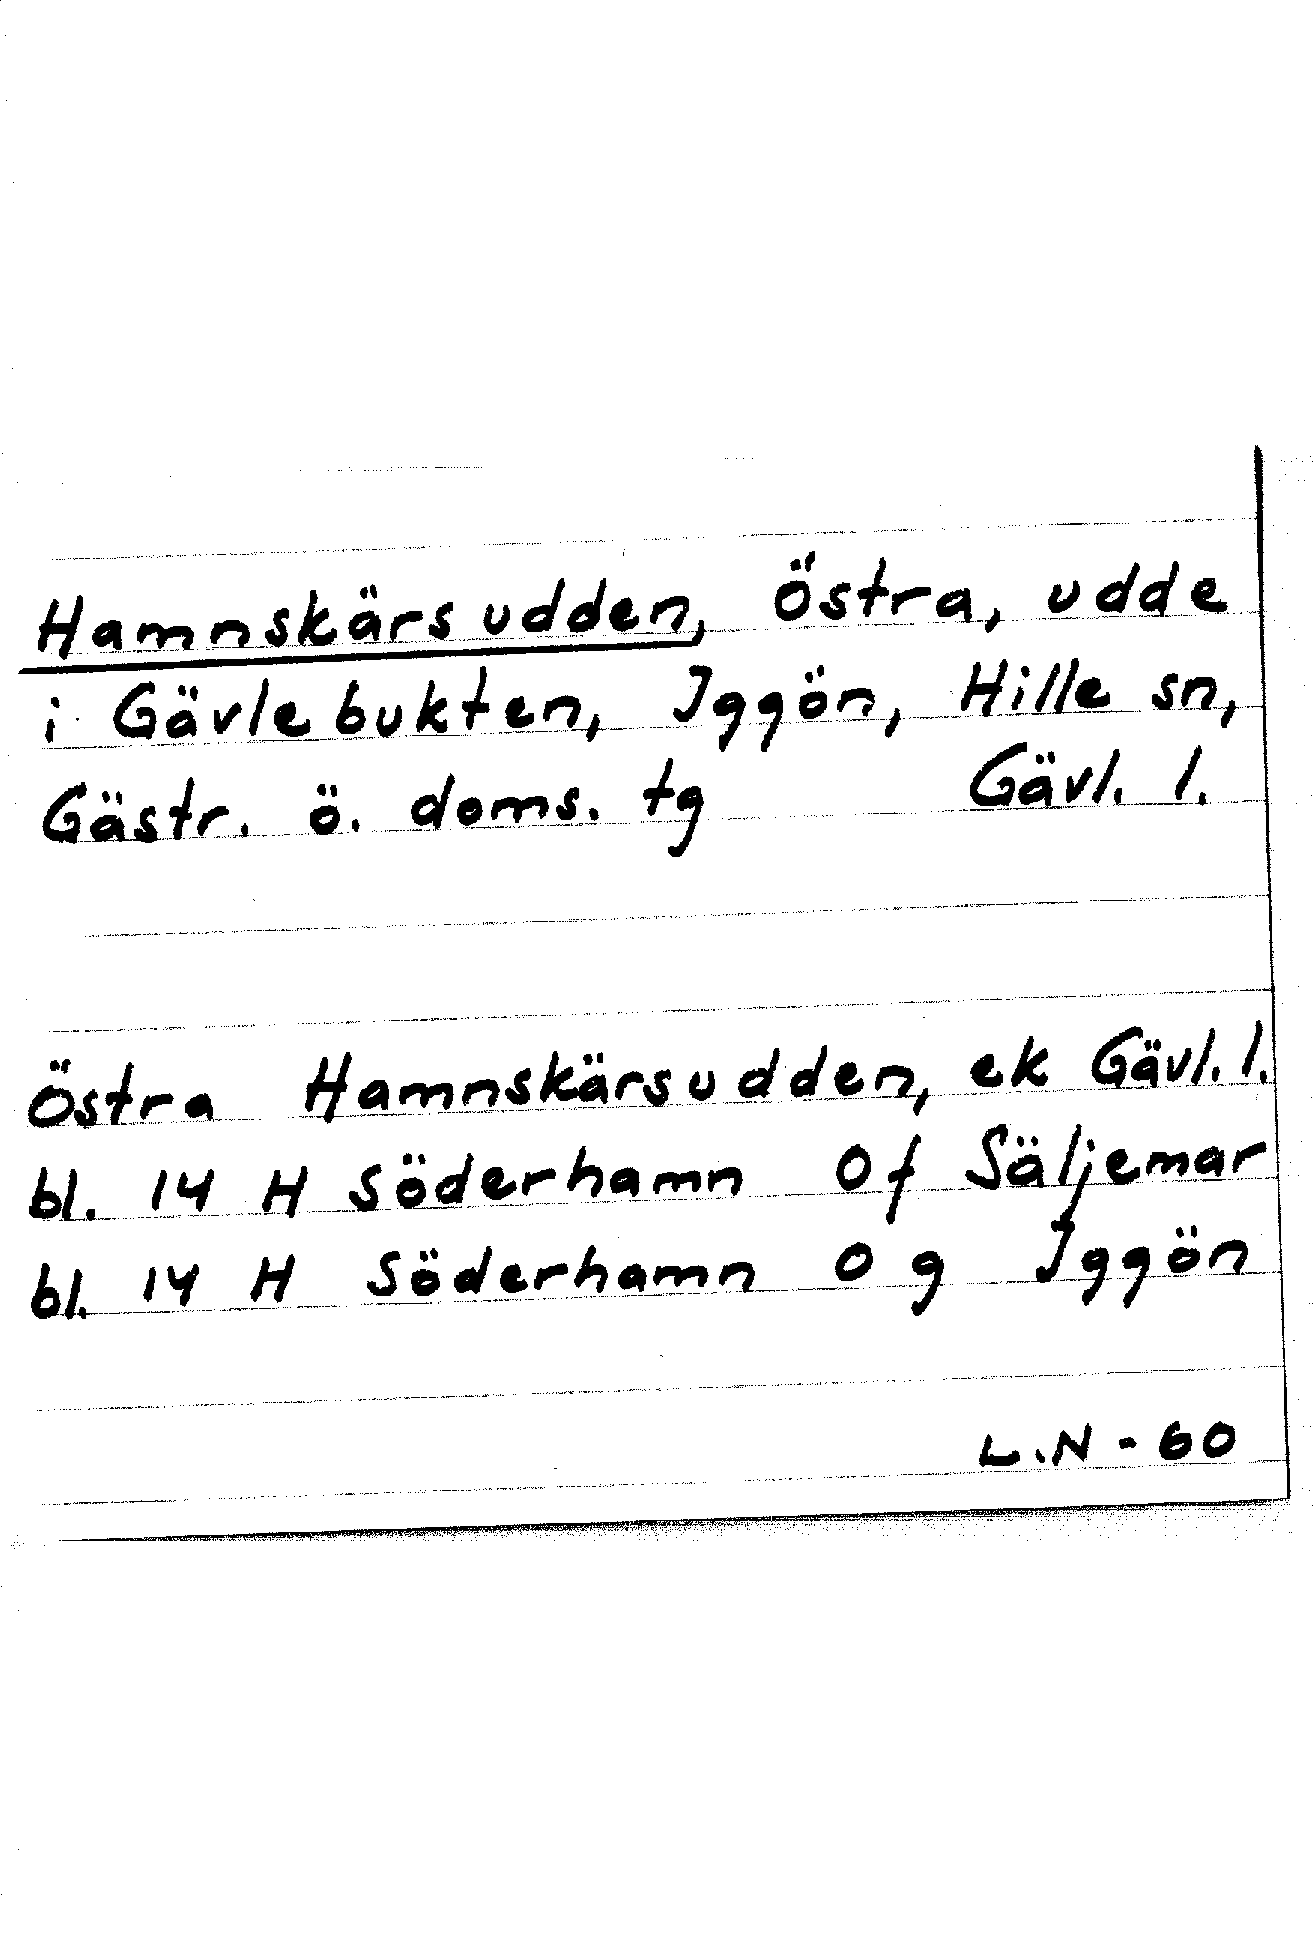 Hamnskärsudden, Östra, udde
i Gävlebukten, Iggön, Hille sn,
Gästr. ö. doms. tg Gävl. l.
Östra Hamnskärsudden, ek Gävl. l.
bl. 14 H Söderhamn 0 f Säljemar
bl. 14 H Söderhamn 0 g Iggön
L.N - 60